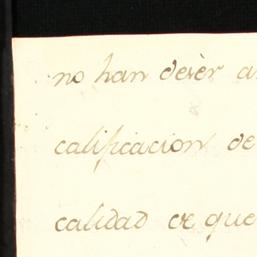 no han de ser a
calificacion de
calidad de que